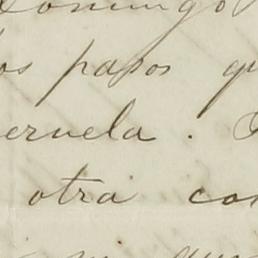 Domingo
os pasos qu
eruela.
otra cos